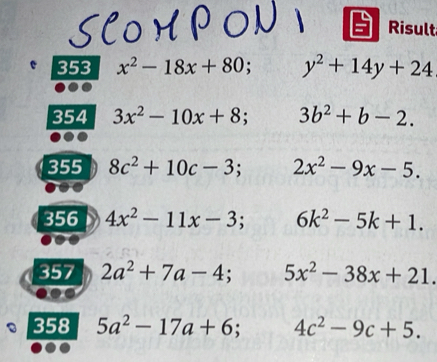 SCOMPONI
Risult
353 x² − 18x + 80; y² + 14y + 24.
354 3x² − 10x + 8; 3b² + b − 2.
355 8c² + 10c − 3; 2x² − 9x − 5.
356 4x² − 11x − 3; 6k² − 5k + 1.
357 2a² + 7a − 4; 5x² − 38x + 21.
358 5a² − 17a + 6; 4c² − 9c + 5.